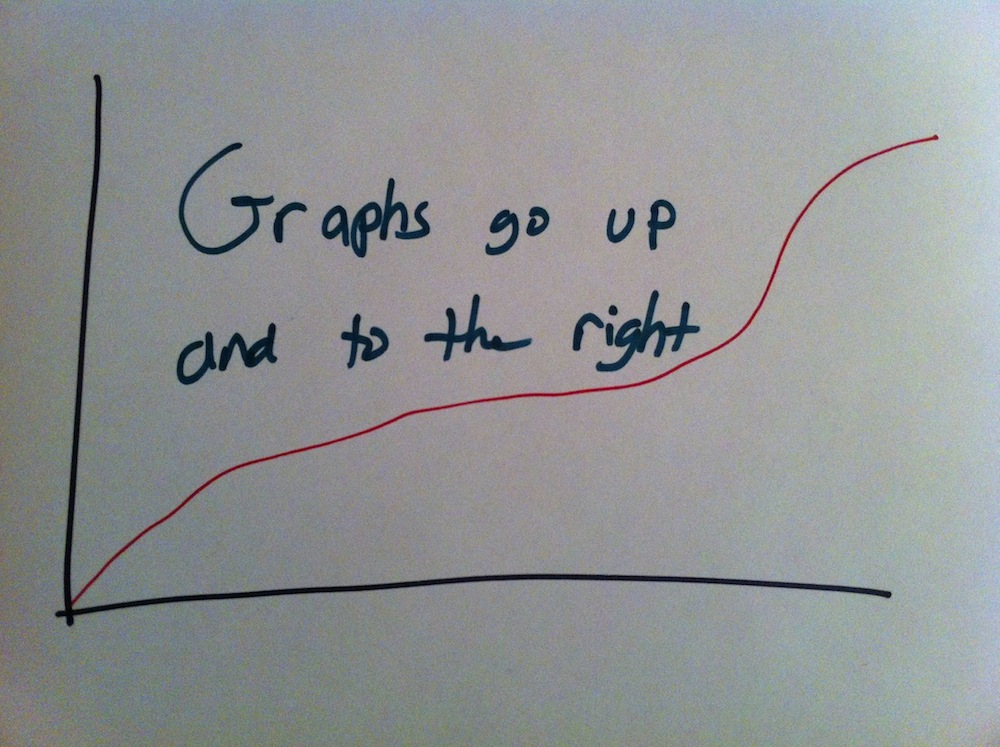 Graphs go up
and to the right